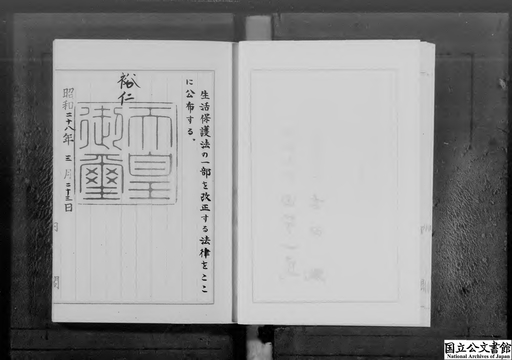 生活保護法の一部を改正する法律をここ
に公布する。
裕仁
天皇
御璽
昭和二十八年三月二十三日
国立公文書館
National Archives of Japan